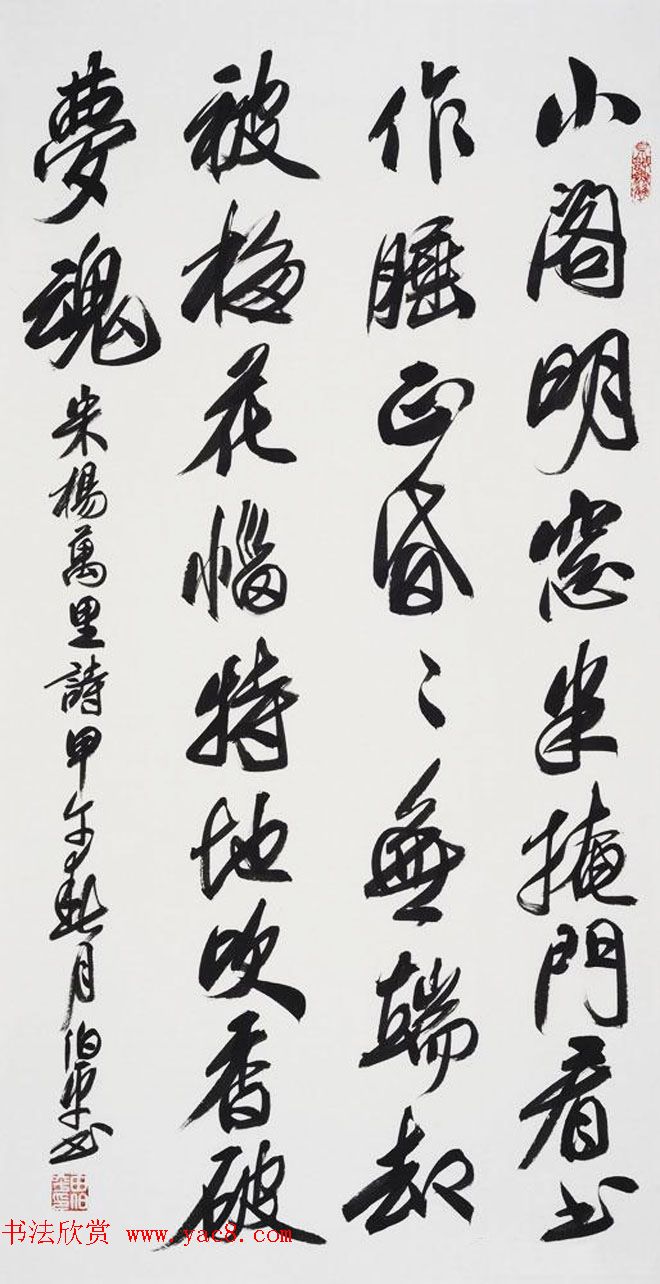 小阁明窓半掩門看书
作睡正昏〻無端却
被梅花惱特地吹香破
夢魂
宋楊萬里詩甲午秋月伯平书
书法欣赏 www.yac8.com